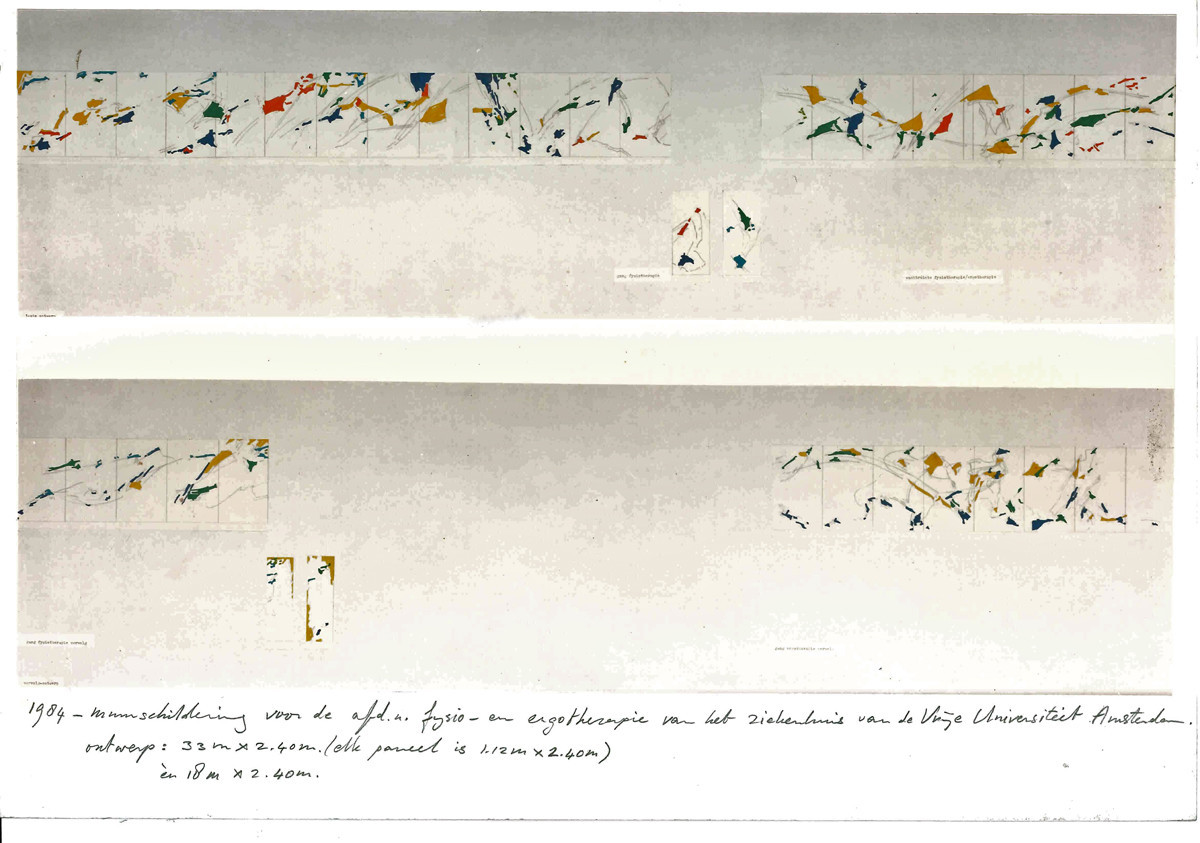 gang fysiotherapie
wachtruimte fysiotherapie/ergotherapie
gang fysiotherapie vervolg
gang ergotherapie vervolg
1984 – muurschildering voor de afd.n. fysio – en ergotherapie van het ziekenhuis van de Vrije Universiteit Amsterdam.
ontwerp: 33 m x 2.40 m. (elk paneel is 1.12m x 2.40m)
èn 18 m x 2.40 m.